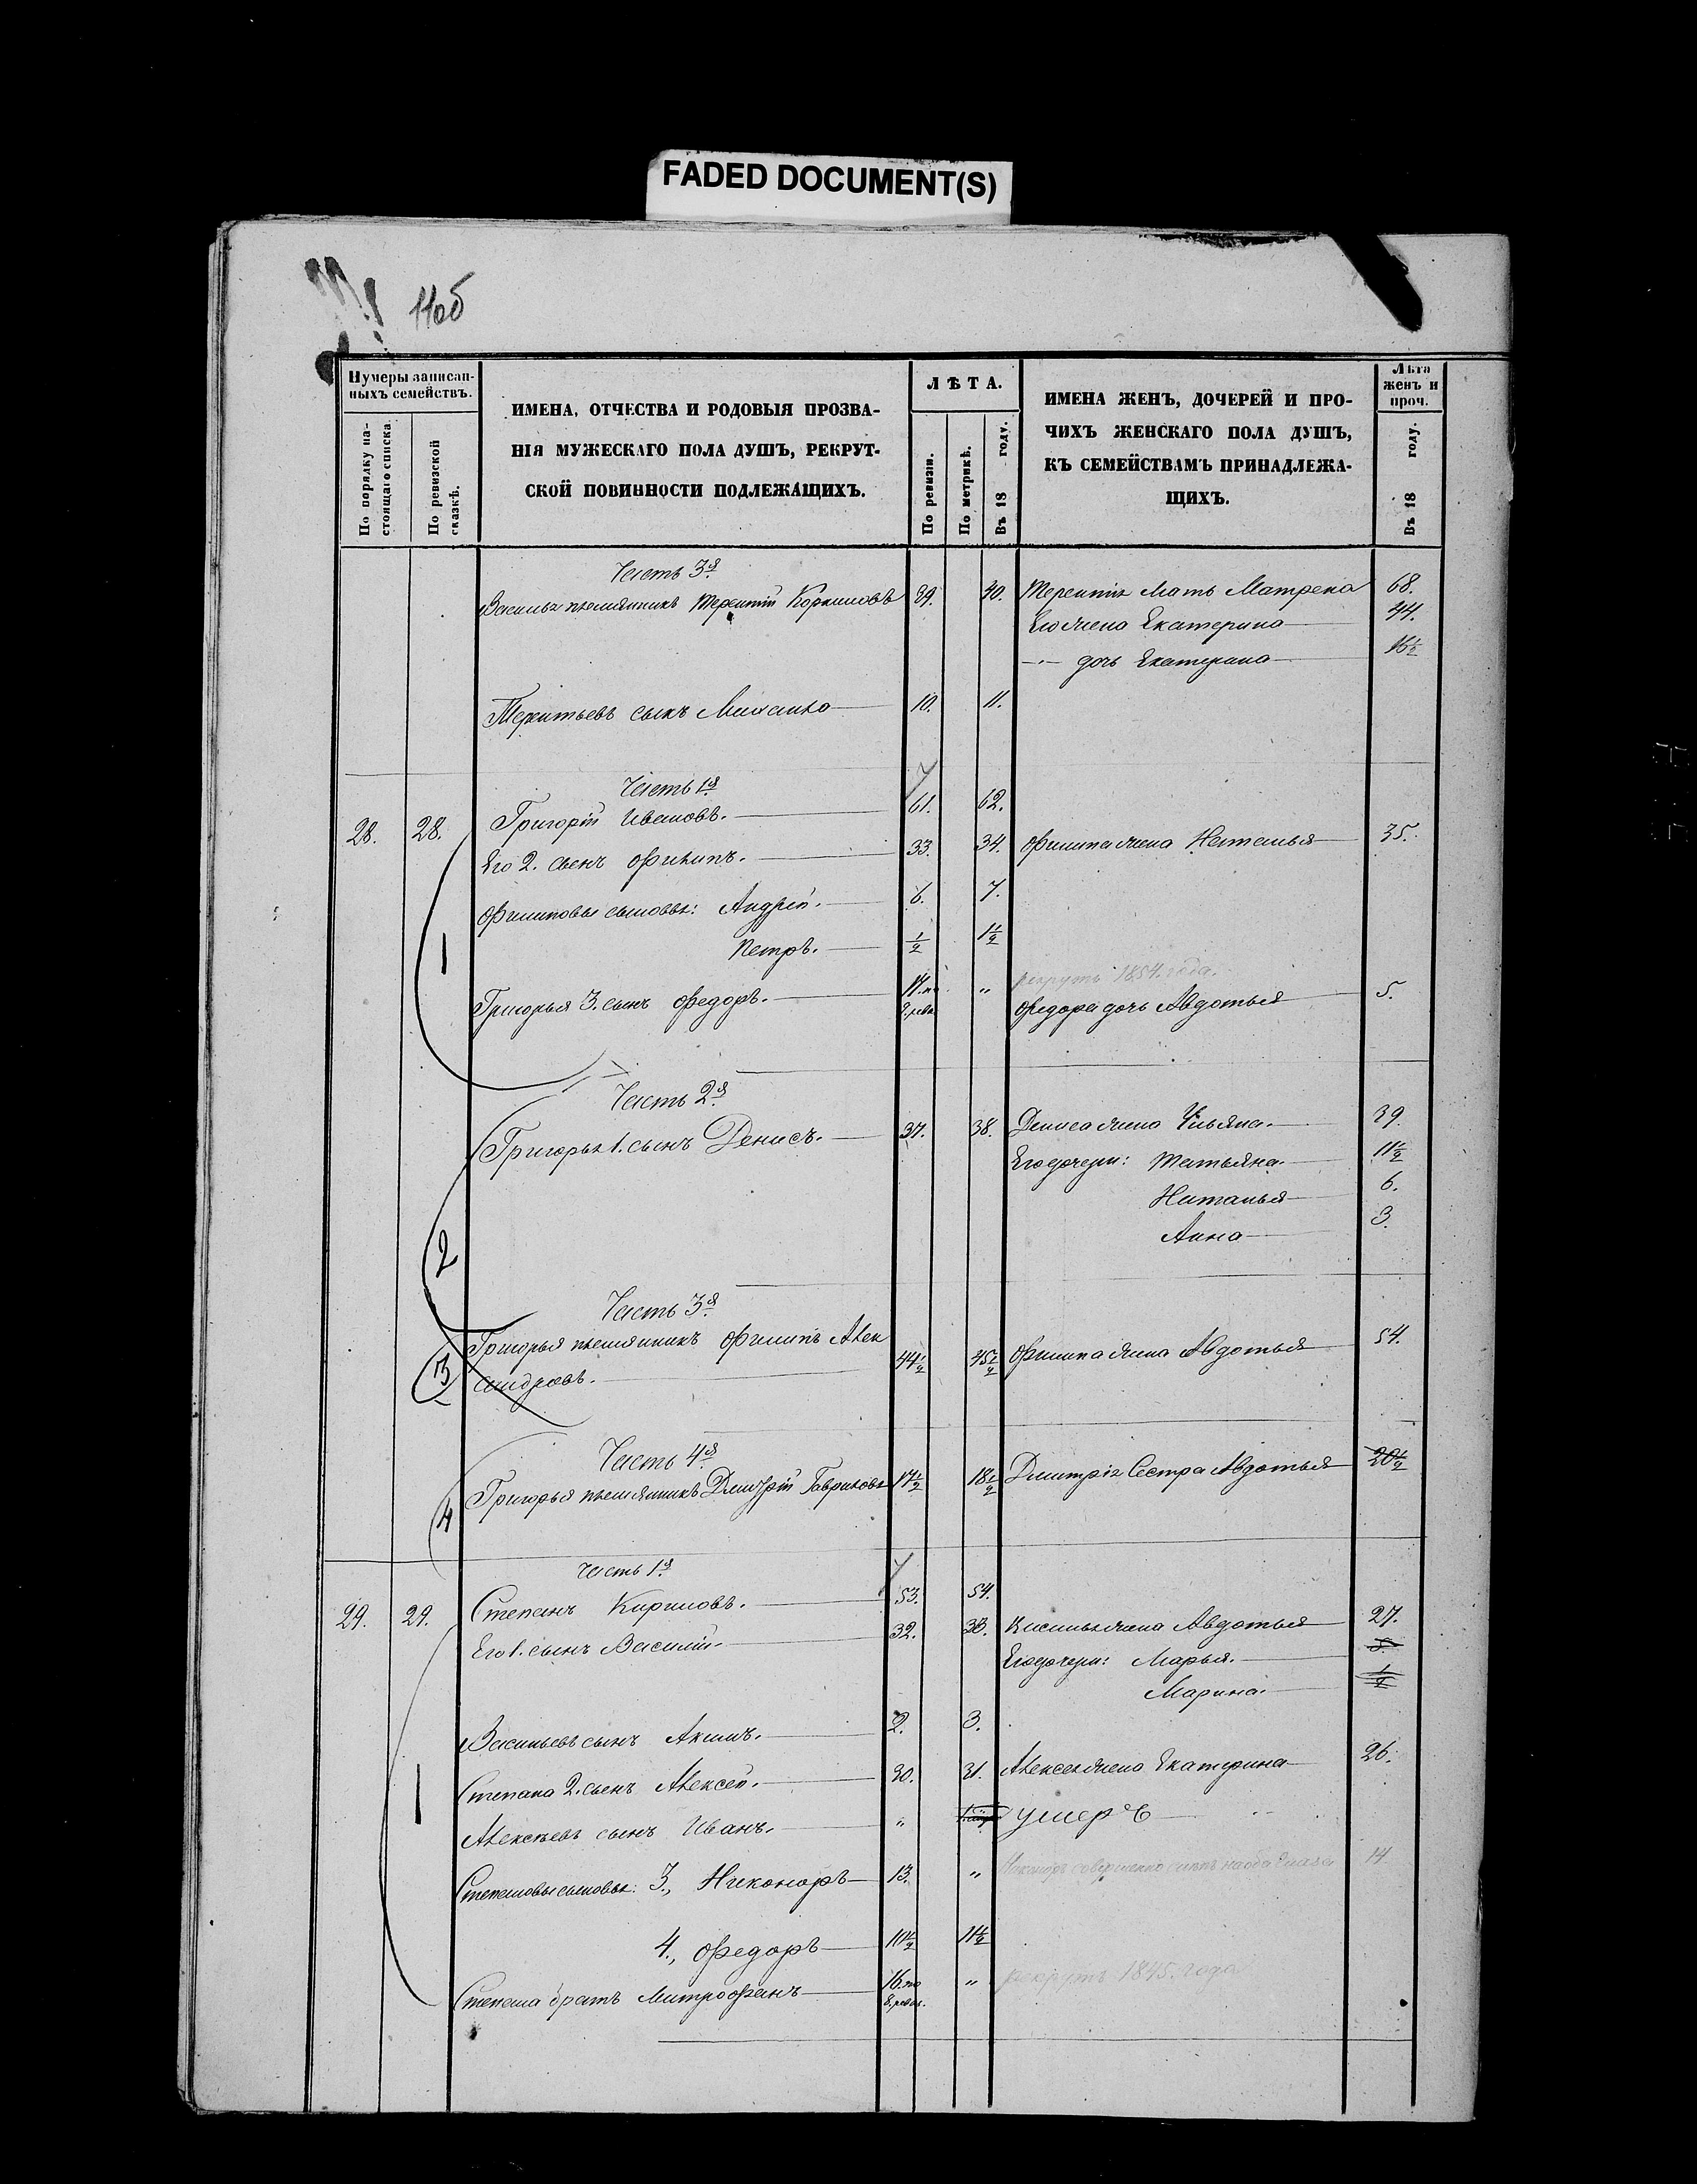 FADED DOCUMENT(S)
11об
Нумеры записан-
ныхъ семействъ.
По порядку на-
стоящаго списка.
По ревизской
сказкѣ.
ИМЕНА, ОТЧЕСТВА И РОДОВЫЯ ПРОЗВА-
НІЯ МУЖЕСКАГО ПОЛА ДУШЪ, РЕКРУТ-
СКОЙ ПОВИННОСТИ ПОДЛЕЖАЩИХЪ.
ЛѢТА.
По ревизіи.
По метрикѣ.
Въ 18 году.
ИМЕНА ЖЕНЪ, ДОЧЕРЕЙ И ПРО-
ЧИХЪ ЖЕНСКАГО ПОЛА ДУШЪ,
КЪ СЕМЕЙСТВАМЪ ПРИНАДЛЕЖА-
ЩИХЪ.
Лѣта
женъ и
проч.
Въ 18 году.
Часть 3я
Василья племянникъ Терентій Корниловъ 39. 40. Терентія Мать Матрена 68.
Его жена Екатерина 44.
-"- дочь Екатерина 16½
Терентьевъ сынъ Михаило 10. 11.
Часть 1я
28. 28. Григорій Ивановъ. 61. 62.
Его 2. сынъ Филипъ. 33. 34. Филипа жена Наталья 35.
Филиповы сыновья: Андрей. 6. 7.
Петръ. ½ 1½
рекрутъ 1854. года.
Григорья 3. сынъ Федоръ. 17. по 8. реви. " Федора дочь Авдотья 5.
1
Часть 2я
Григорья 1. сынъ Денисъ. 37. 38. Дениса жена Ульяна. 39.
Его дочери: Татьяна. 11½
Наталья 6.
Анна 3.
2
Часть 3я
Григорья племянникъ Филипъ Алек
сандровъ. 44½ 45½ Филипа жена Авдотья 54.
3
Часть 4я
Григорья племянникъ Дмитрій Гавриловъ 17½ 18½ Дмитрія Сестра Авдотья 20½
4
Часть 1я
29. 29. Степанъ Кириловъ. 53. 54.
Его 1. сынъ Василій. 32. 33. Василья жена Авдотья 27.
Его дочери: Марья. 5.
Марина. ½
Васильевъ сынъ Акимъ. 2. 3.
Степана 2. сынъ Алексей. 30. 31. Алексея жена Екатерина 26.
1
Алексѣевъ сынъ Иванъ. " умеръ
Степановы сыновья: 3., Никоноръ 13. " Никоноръ совершенно слепъ на оба глаза 14
4., Федоръ 10½ 11½
Степана братъ Митрофанъ 16. по 8. реви. " рекрутъ 1845. года